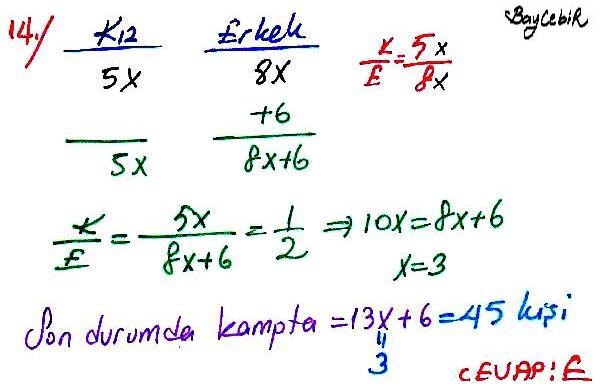 BayCebiR
14./ Kız Erkek
5x 8x K/E = 5x/8x
+6
5x 8x+6
K/E = 5x/8x+6 = 1/2 ⇒ 10x = 8x+6
x=3
Son durumda kampta = 13x + 6 = 45 kişi
"
3
CEVAP: E